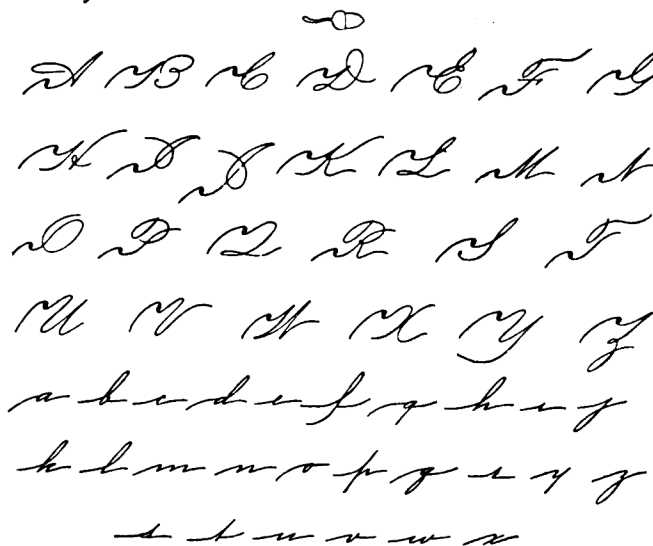 A B C D E F G
H I J K L M N
O P Q R S T
U V W X Y Z
a b c d e f g h i j
k l m n o p q r y z
s t u v w x